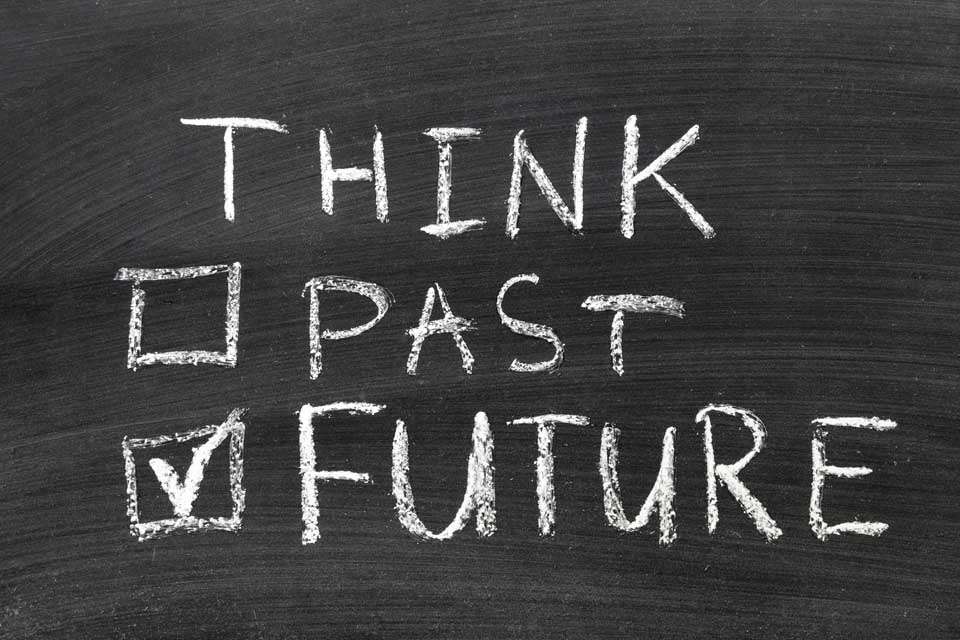 THINK
PAST
FUTURE